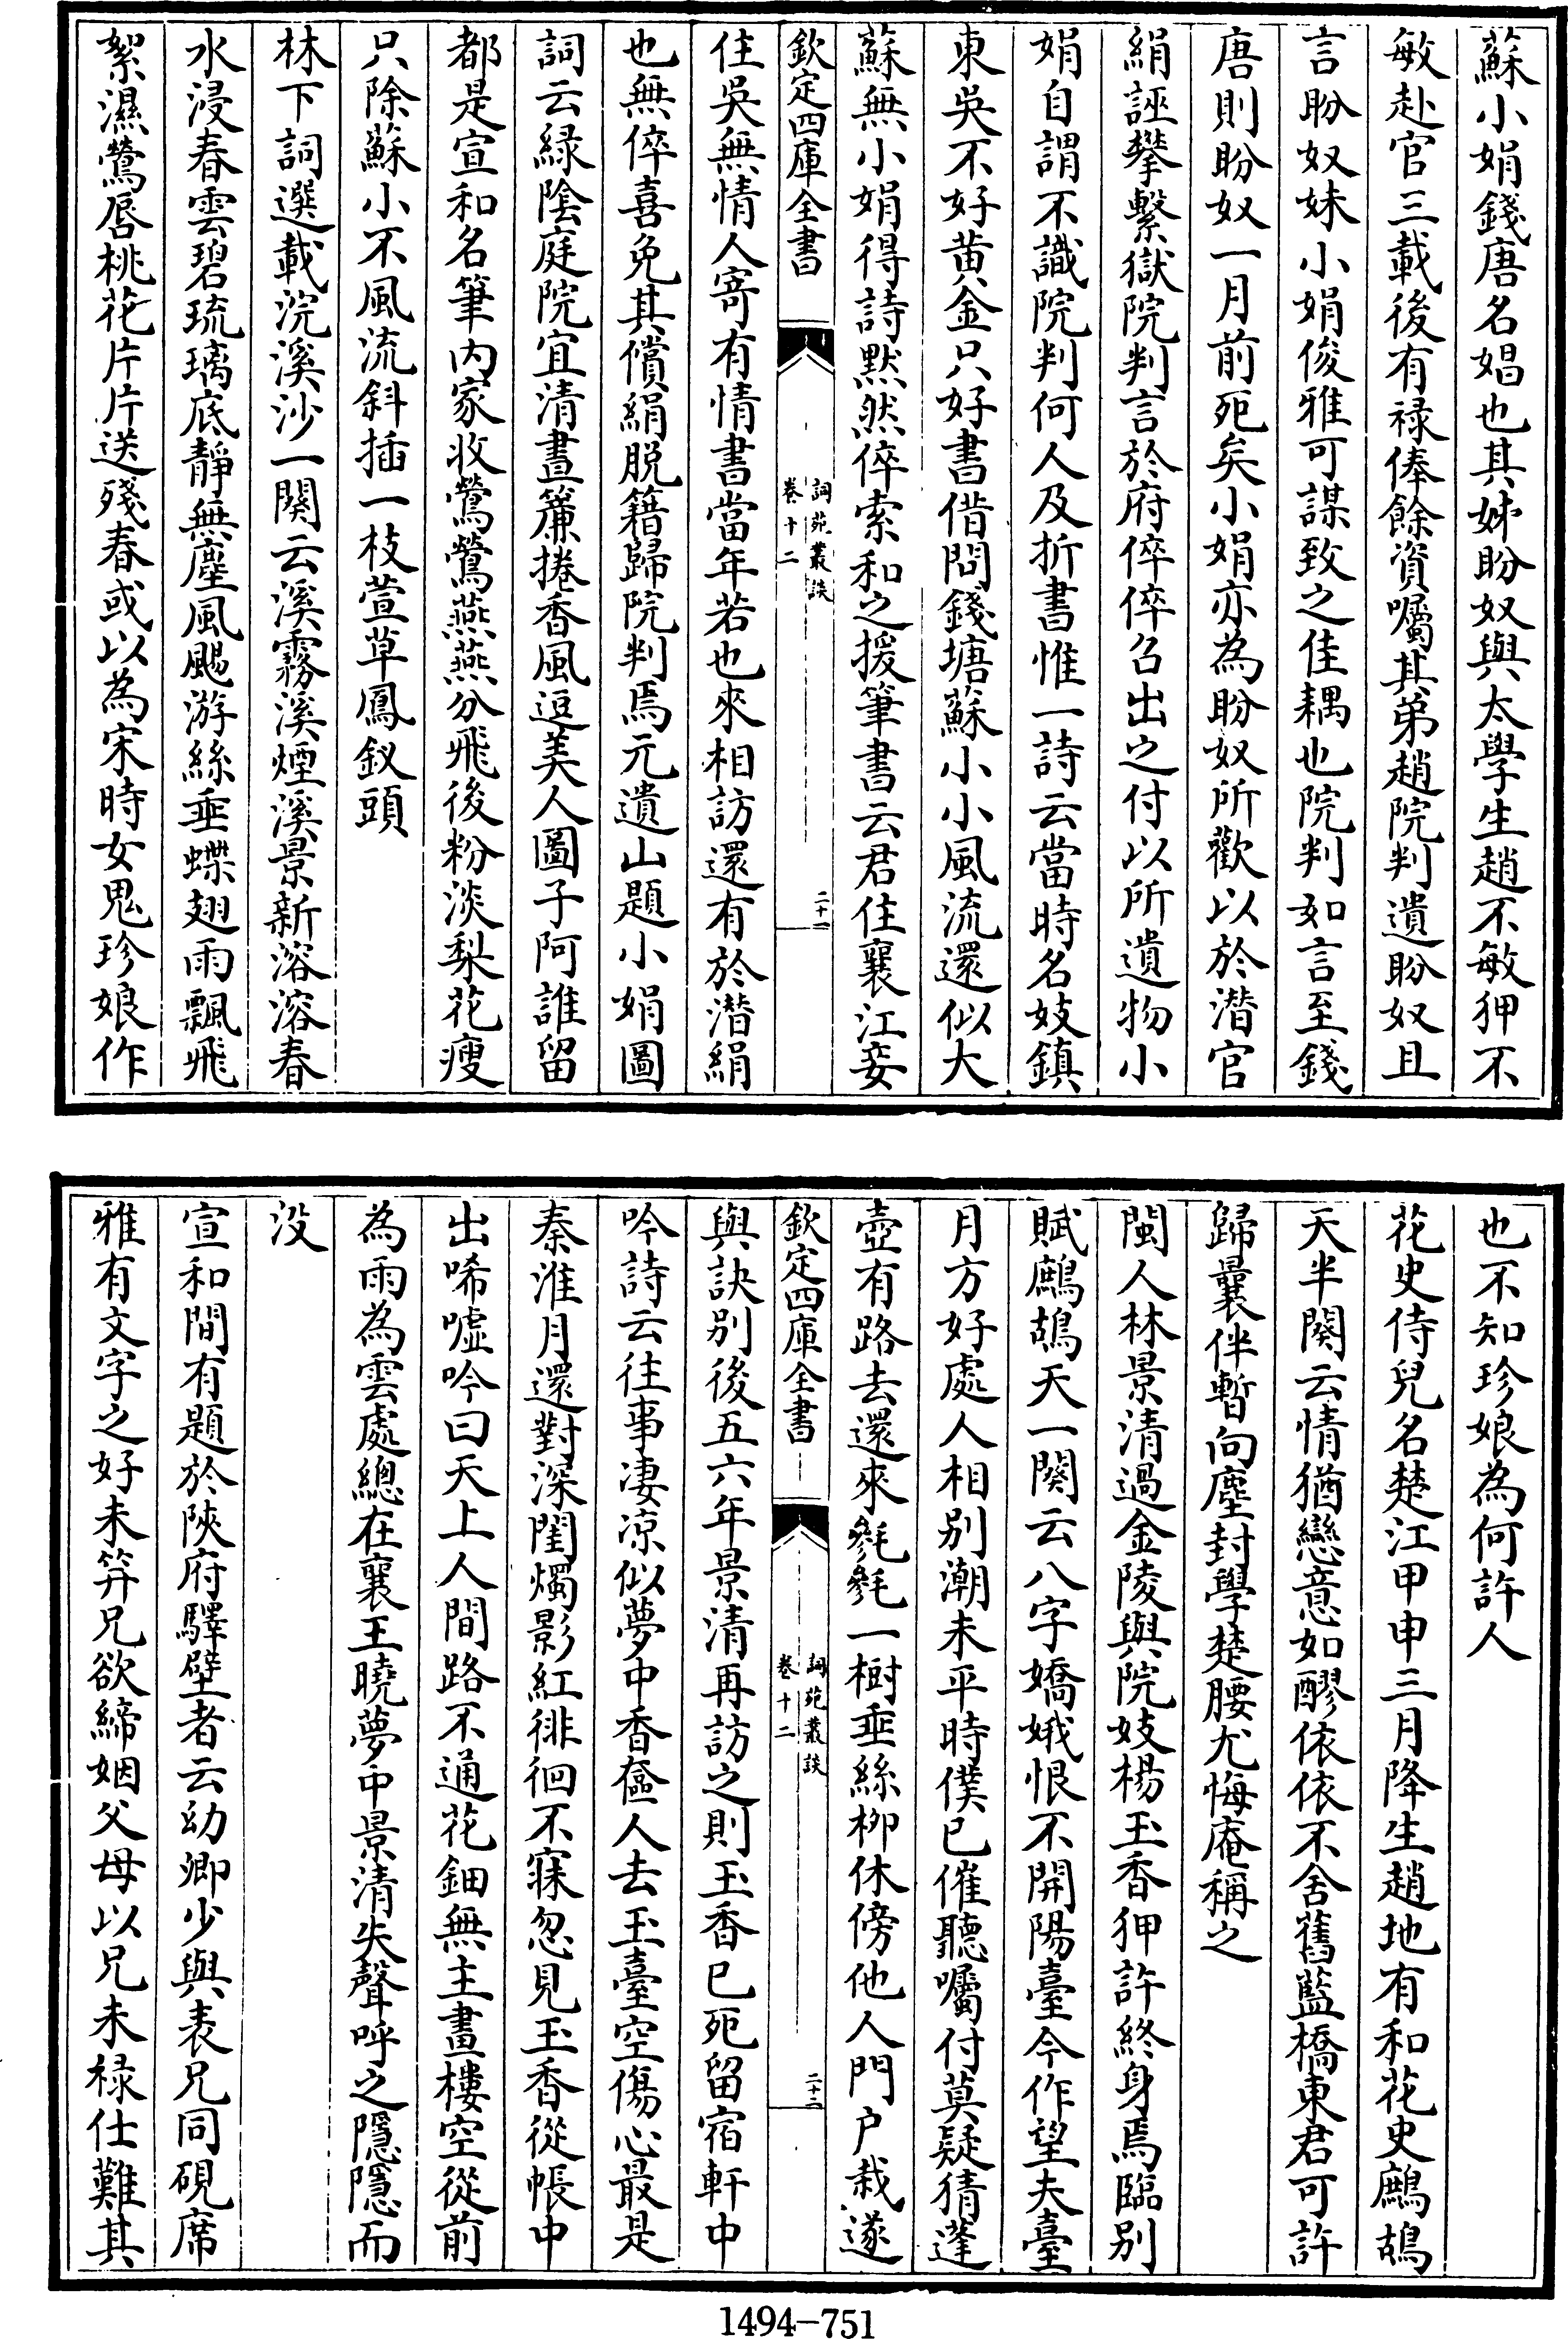 蘇小娟錢唐名娼也其姊盼奴與太學生趙不敏狎不
敏赴官三載後有祿俸餘資囑其弟趙院判遺盼奴且
言盼奴妹小娟俊雅可謀致之佳耦也院判如言至錢
唐則盼奴一月前死矣小娟亦為盼奴所歡以於潛官
絹誣攀繫獄院判言於府倅倅召出之付以所遺物小
娟自謂不識院判何人及折書惟一詩云當時名妓鎮
東吳不好黃金只好書借問錢塘蘇小小風流還似大
蘇無小娟得詩默然倅索和之援筆書云君住襄江妾
欽定四庫全書
詞苑叢談
卷十二
二十一
住吳無情人寄有情書當年若也來相訪還有於潛絹
也無倅喜免其償絹脫籍歸院判焉元遺山題小娟圖
詞云綠陰庭院宜清晝簾捲香風逗美人圖子阿誰留
都是宣和名筆内家收鶯鶯燕燕分飛後粉淡梨花瘦
只除蘇小不風流斜插一枝萱草鳳釵頭
林下詞選載浣溪沙一闋云溪霧溪煙溪景新溶溶春
水浸春雲碧琉璃底靜無塵風颺游絲垂蝶翅雨飄飛
絮濕鶯唇桃花片片送殘春或以為宋時女鬼珍娘作
也不知珍娘為何許人
花史侍兒名楚江甲申三月降生趙地有和花史鷓鴣
天半闋云情猶戀意如醪依依不舍舊藍橋東君可許
歸曩伴暫向塵封學楚腰尤悔庵稱之
閩人林景清過金陵與院妓楊玉香狎許終身焉臨别
賦鷓鴣天一闋云八字嬌娥恨不開陽臺今作望夫臺
月方好處人相别潮未平時僕已催聽囑付莫疑猜蓬
壺有路去還來毿毿一樹垂絲柳休傍他人門户栽遂
欽定四庫全書
詞苑叢談
卷十二
二十二
與訣别後五六年景清再訪之則玉香已死留宿軒中
吟詩云往事凄涼似夢中香奩人去玉臺空傷心最是
秦淮月還對深閨燭影紅徘徊不寐忽見玉香從帳中
出唏嘘吟曰天上人間路不通花鈿無主畫樓空從前
為雨為雲處總在襄王曉夢中景清失聲呼之隱隱而
没
宣和間有題於陝府驛壁者云幼卿少與表兄同硯席
雅有文字之好未笄兄欲締姻父母以兄未祿仕難其
1494-751